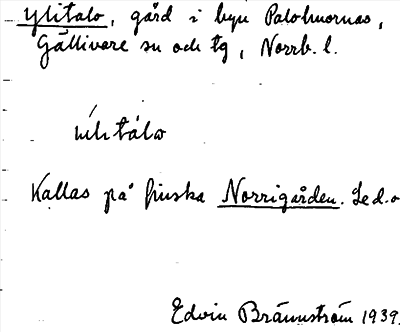 Ylitalo, gård i byn Palohuornas,
Gällivare sn och tg, Norrb. l.
Kallas på finska Norrigården. Se d.o
Edvin Brännström 1939.